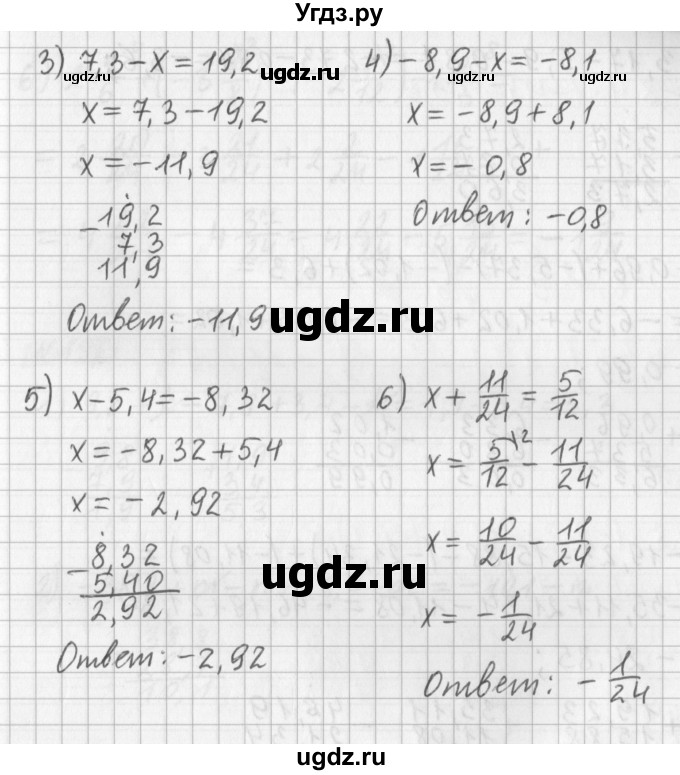 Угдз.ру
3) 7,3 − x = 19,2
ugdz.ru
x = 7,3 − 19,2
x = −11,9
− 19,2
7,3
11,9
Ответ: −11,9
4) −8,9 − x = −8,1
ugdz.ru
x = −8,9 + 8,1
x = −0,8
Ответ: −0,8
ugdz.ru
5) x − 5,4 = −8,32
x = −8,32 + 5,4
x = −2,92
− 8,32
5,40
2,92
Ответ: −2,92
6) x + 11/24 = 5/12
x = 5\2/12 − 11/24
x = 10/24 − 11/24
x = −1/24
Ответ: −1/24
ugdz.ru
ugdz.ru